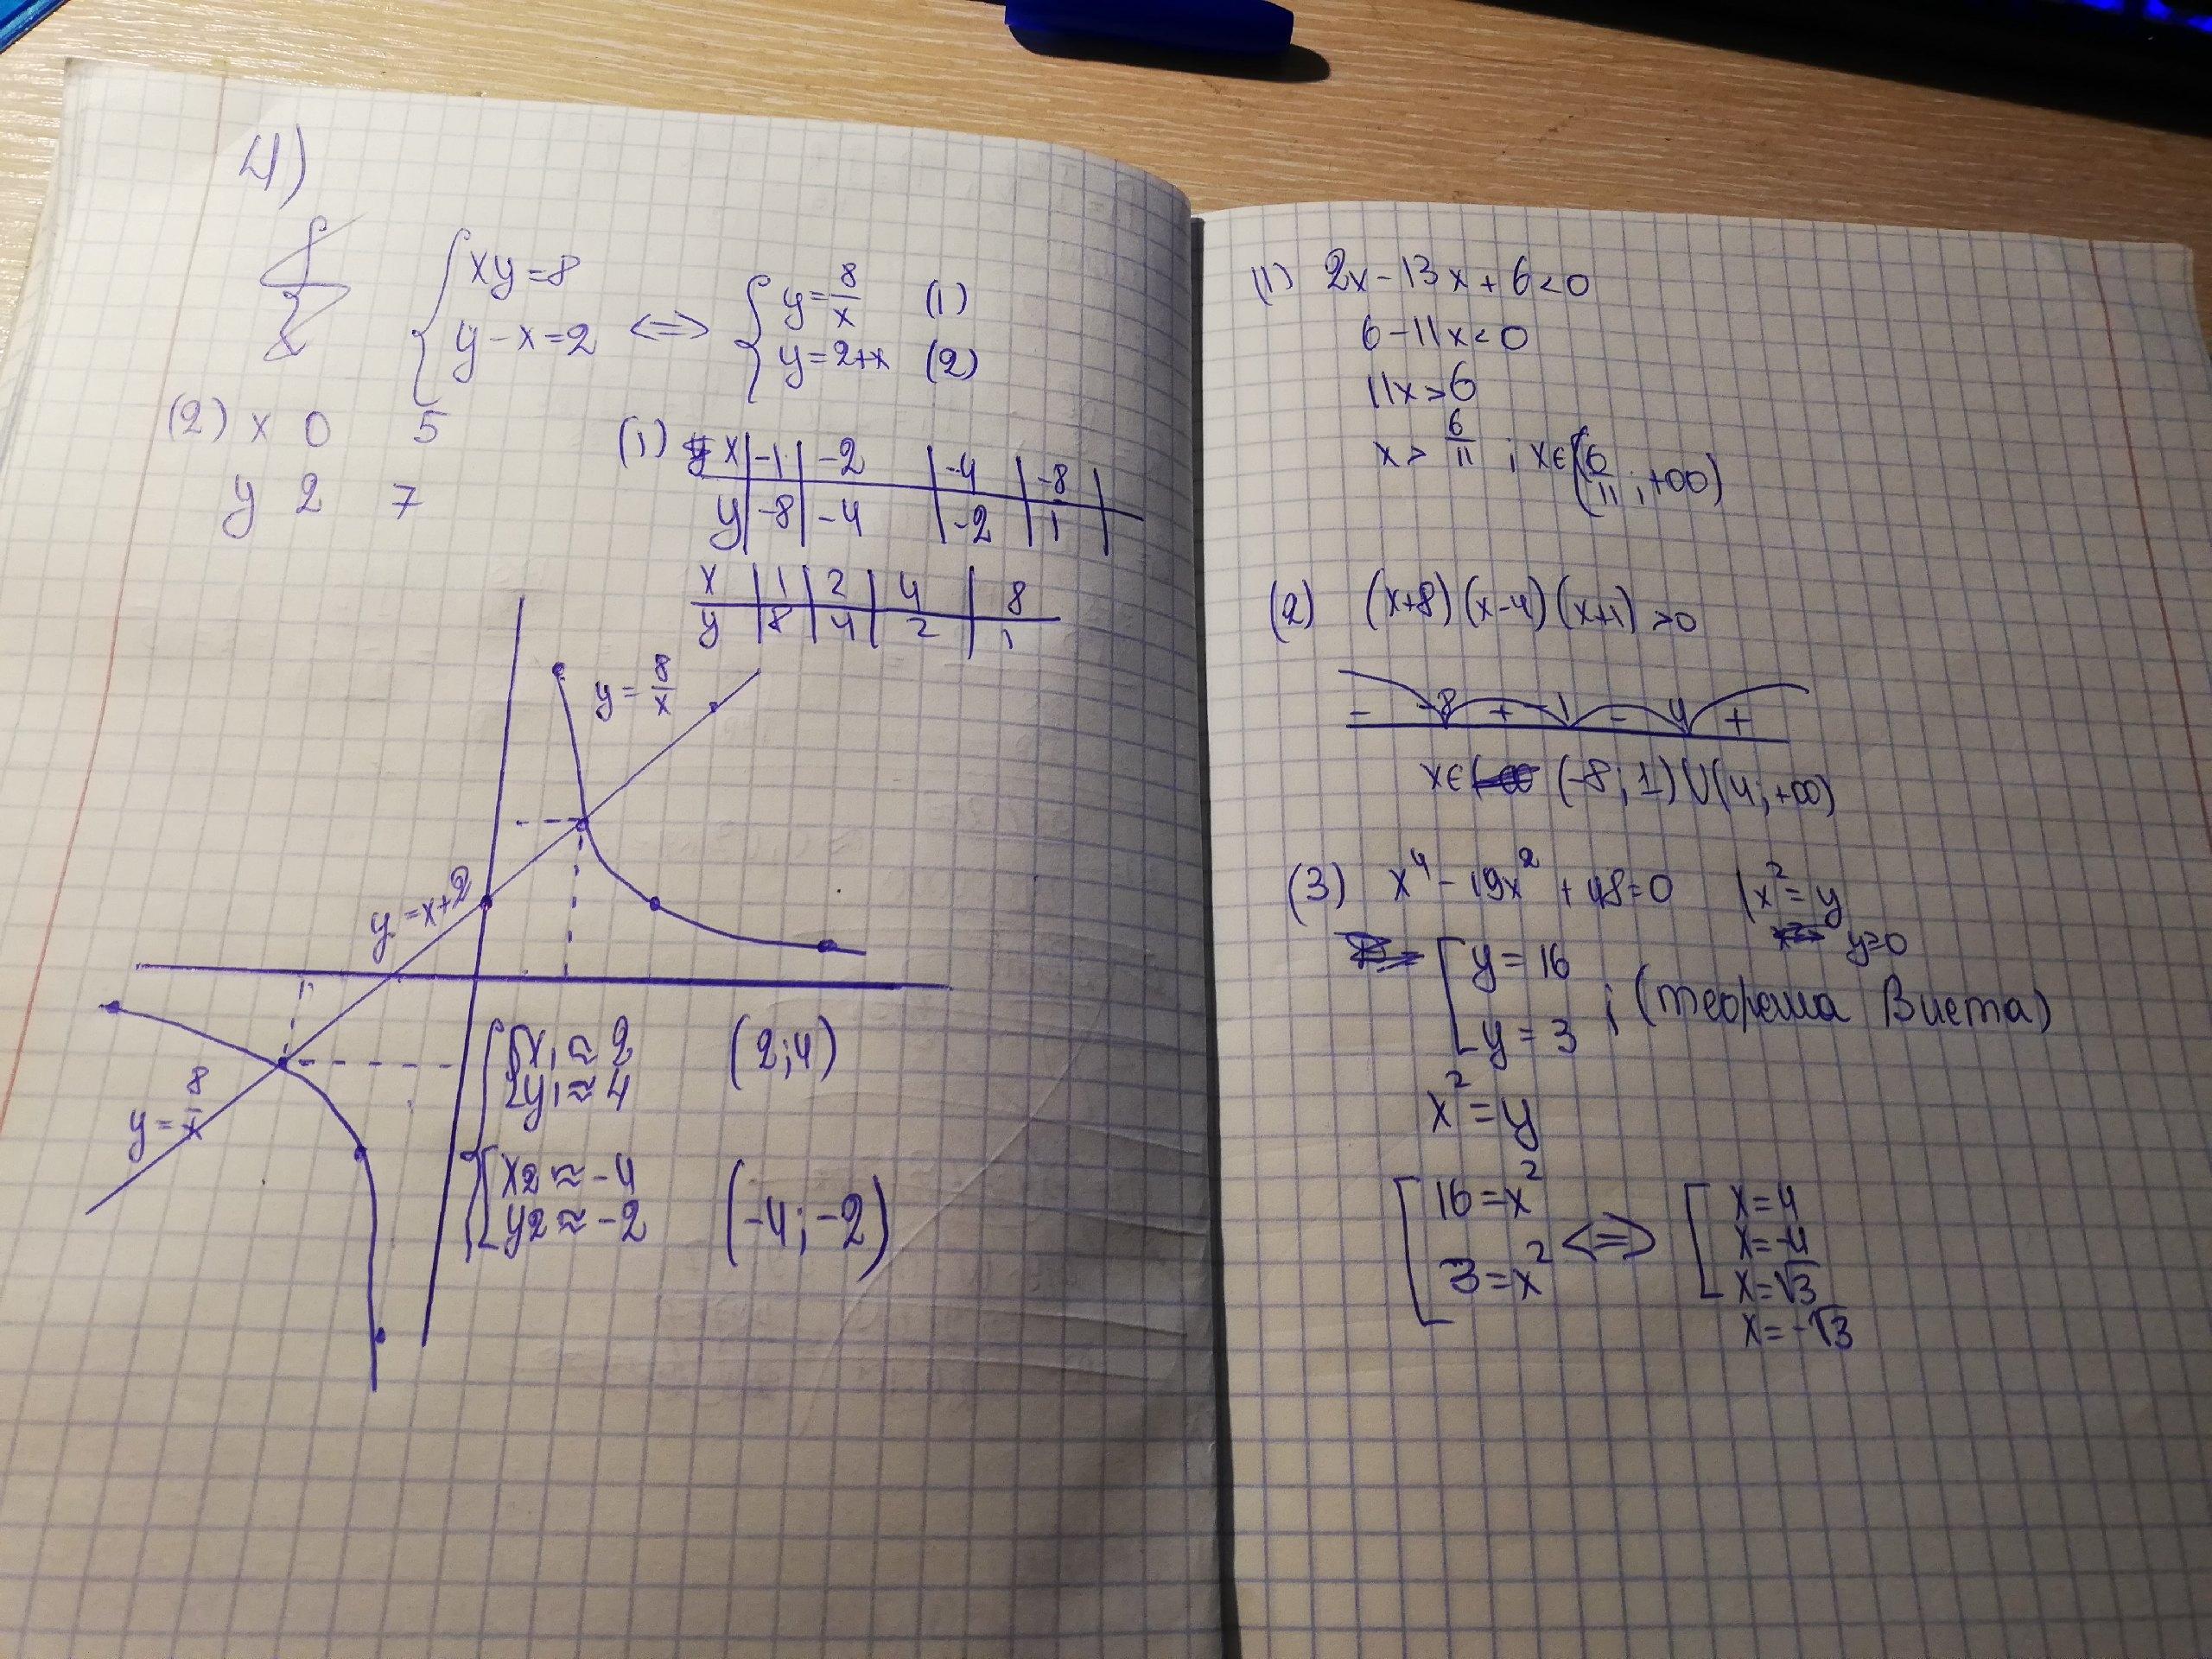 4)
{ xy = 8
y - x = 2 <=> { y = 8/x (1)
y = 2+x (2)
(2) x 0 5
y 2 7
(1) x | -1 | -2 | -4 | -8 |
y | -8 | -4 | -2 | 1 |
x | 1 | 2 | 4 | 8
y | 8 | 4 | 2 | 1
y = 8/x
y = x+2
y = 8/x
{ { x1 ≈ 2
y1 ≈ 4 (2;4)
{ x2 ≈ -4
y2 ≈ -2 (-4;-2)
(1) 2x - 13x + 6 < 0
6 - 11x < 0
11x > 6
x > 6/11 ; x ∈ (6/11 ; +∞)
(2) (x+8)(x-4)(x+1) > 0
- -8 + -1 - 4 +
x ∈ (-8; 1) U (4; +∞)
(3) x⁴ - 19x² + 48 = 0 | x² = y
y≥0
[ y = 16
y = 3 ; (теорема Виета)
x² = y
[ 16 = x²
3 = x² <=> [ x = 4
x = -4
x = √3
x = -√3